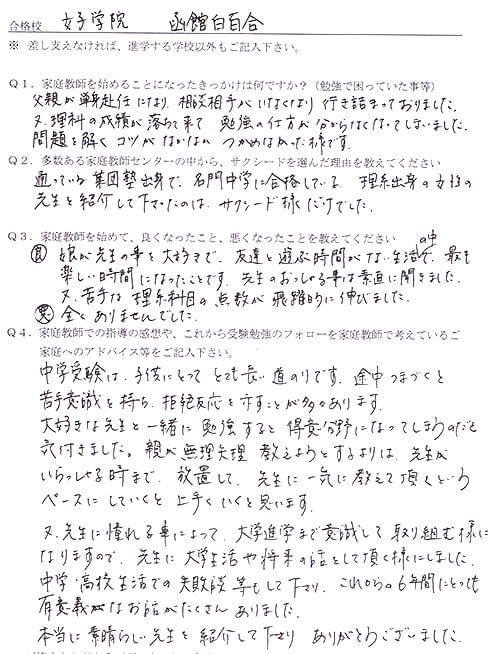 合格校 女子学院 函館白百合
※ 差し支えなければ、進学する学校以外もご記入下さい。
Q1．家庭教師を始めることになったきっかけは何ですか？（勉強で困っていた事等）
父親が単身赴任になり、相談相手がいなくなり 行き詰まっておりました。
又、理科の成績が落ちて来て 勉強の仕方が分からなくなってしまいました。
問題を解くコツがなかなか つかめなかった様です。
Q2．多数ある家庭教師センターの中から、サクシードを選んだ理由を教えてください
通っている集団塾出身で、名門中学に合格している、理系出身の女性の
先生を紹介して下さったのは、サクシード様だけでした。
Q3．家庭教師を始めて、良くなったこと、悪くなったことを教えてください
良 娘が先生の事を大好きで、友達と遊ぶ時間がない生活の中で、最も
楽しい時間になったことです。先生のおっしゃる事は素直に聞きました。
又、苦手な理系科目の点数が飛躍的に伸びました。
悪 全くありませんでした。
Q4．家庭教師での指導の感想や、これから受験勉強のフォローを家庭教師で考えているご
家庭へのアドバイス等をご記入下さい。
中学受験は、子供にとって とても長い道のりです。途中つまづくと
苦手意識を持ち、拒絶反応を示すことが多々あります。
大好きな先生と一緒に勉強すると得意分野になってしまうのだと
気付きました。親が無理矢理 教えようとするよりは、先生が
いらっしゃる時まで、放置して、先生に一気に教えて頂くという
ペースにしていくと上手くいくと思います。
又、先生に憧れる事によって、大学進学まで意識して取り組む様に
なりますので、先生に大学生活や将来の話をして頂く様にしました。
中学・高校生活での失敗談等もして下さり、これからの6年間にとっても
有意義なお話がたくさんありました。
本当に素晴らしい先生を紹介して下さり ありがとうございました。